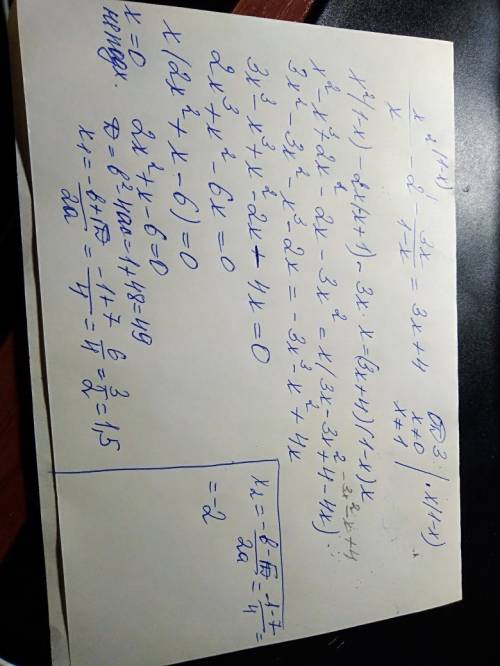 x² (1-x)
x/x - 2 - 3x/(1-x) = 3x+4 ОДЗ: x≠0 x≠1 | · x(1-x)
x²(1-x) - 2x(x+1) - 3x·x = (3x+4)(1-x)x
x² - x³ + 2x² - 2x - 3x² = x(3x - 3x² + 4 - 4x)
-3x² - x + 4
3x² - 3x² - x³ - 2x = -3x³ - x² + 4x
3x³ - x³ + x² - 2x - 4x = 0
2x³ + x² - 6x = 0
x(2x² + x - 6) = 0
x = 0 2x² + x - 6 = 0
не подх. D = b² 4ac = 1 + 48 = 49
x₁ = (-b+√D)/2a = (-1+7)/4 = 6/4 = 3/2 = 1,5
x₂ = (-b-√D)/2a = (-1-7)/4 =
= -2